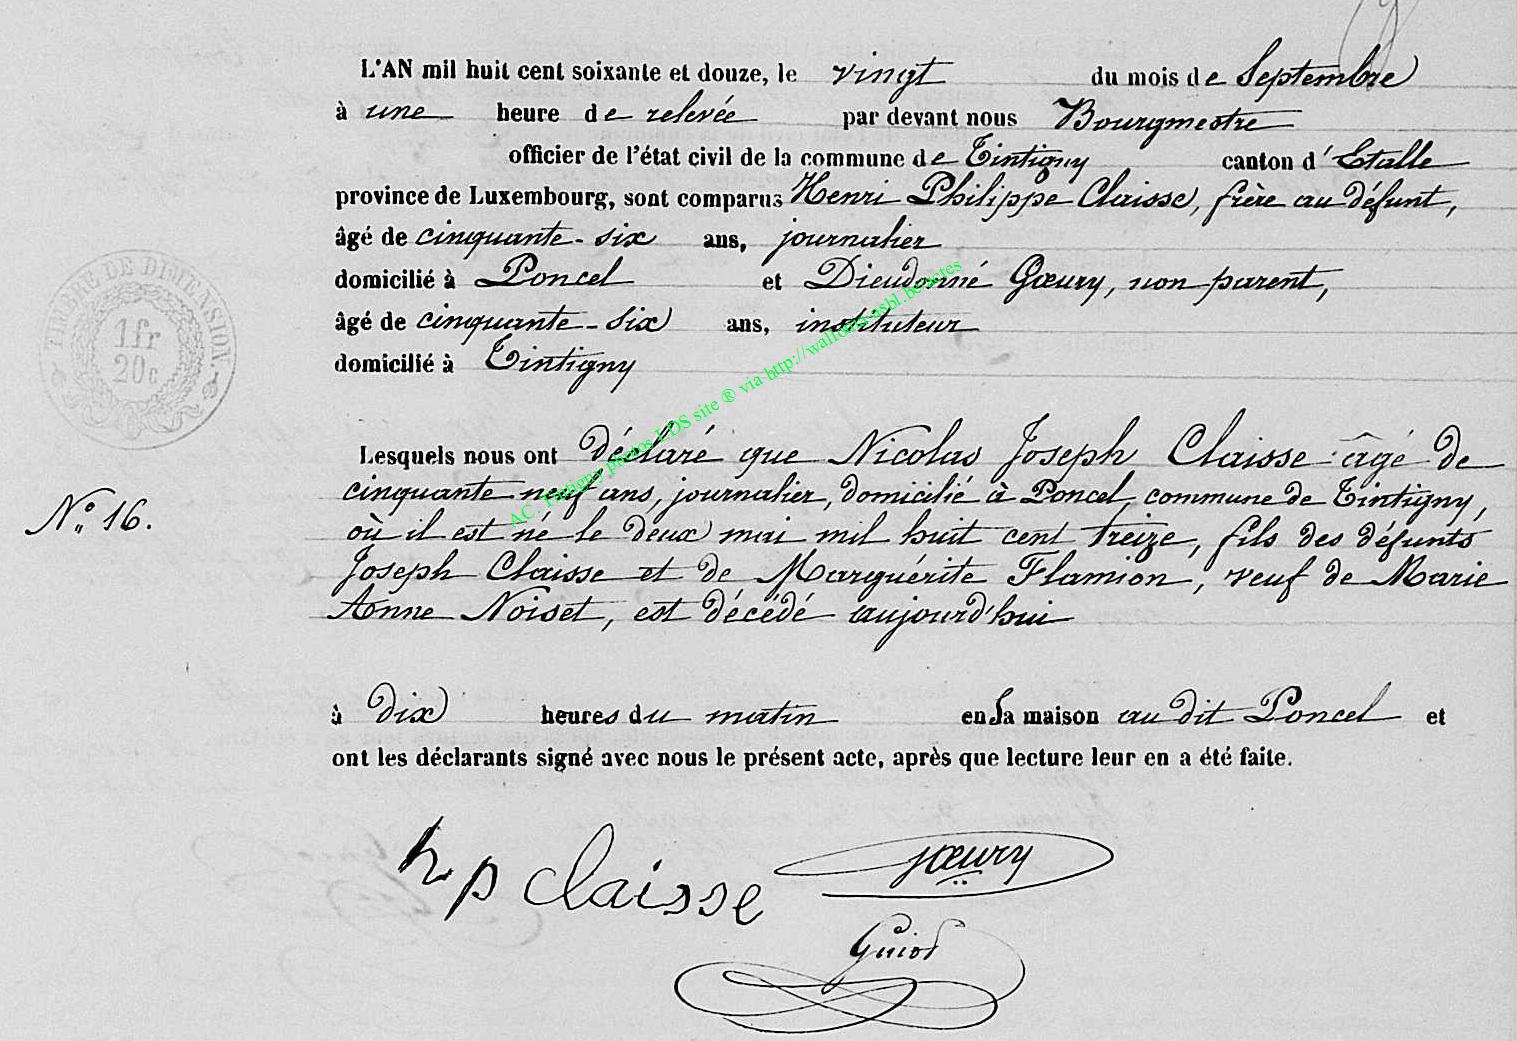 L'AN mil huit cent soixante et douze, le vingt du mois de Septembre
à une heure de relevée par devant nous Bourgmestre
officier de l'état civil de la commune de Tintigny canton d'Etalle
province de Luxembourg, sont comparus Henri Philippe Claisse, frère au défunt,
âgé de cinquante-six ans, journalier
domicilié à Poncel et Dieudonné Gœury, non parent,
âgé de cinquante-six ans, instituteur
domicilié à Tintigny
TIMBRE DE DIMENSION.
1fr
20c
AC. Tintigny photos LDS site ® via http://wallonia-asbl.be/actes
Lesquels nous ont déclaré que Nicolas Joseph Claisse âgé de
cinquante neuf ans, journalier, domicilié à Poncel, commune de Tintigny,
N° 16.
où il est né le deux mai mil huit cent treize, fils des défunts
Joseph Claisse et de Marguérite Flamion, veuf de Marie
Anne Noiset, est décédé aujourd'hui
à dix heures du matin en sa maison au dit Poncel et
ont les déclarants signé avec nous le présent acte, après que lecture leur en a été faite.
h p Claisse Gœury
Guiot